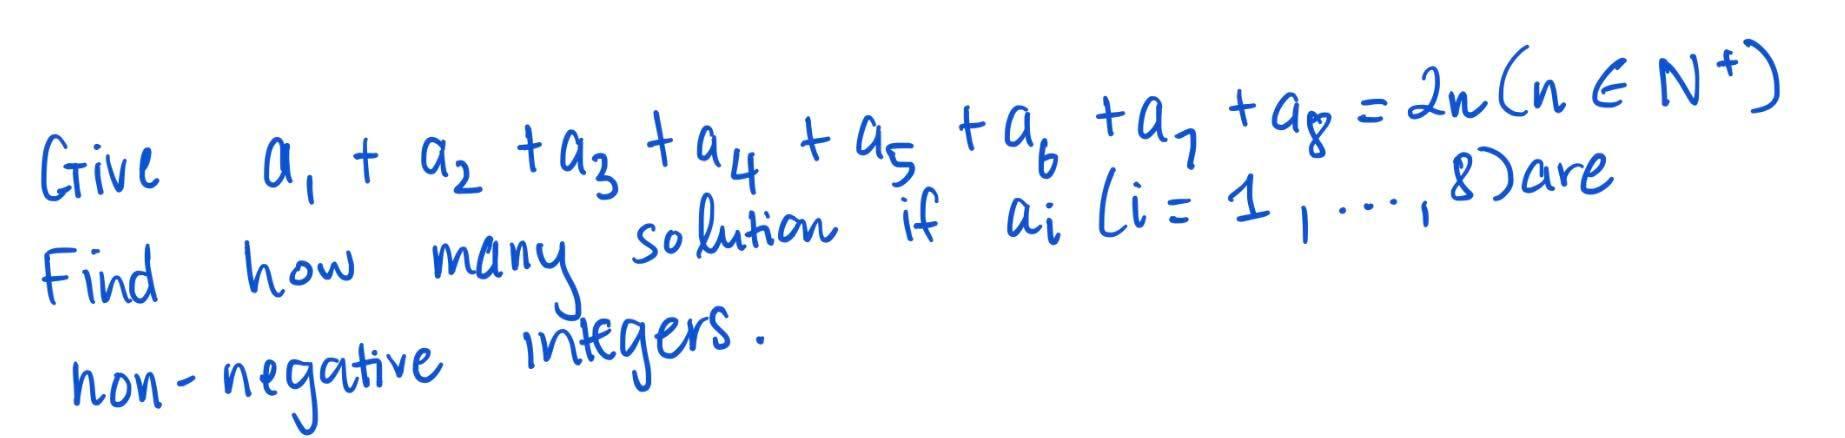 Give a₁ + a₂ + a₃ + a₄ + a₅ + a₆ + a₇ + a₈ = 2n (n ∈ N⁺)
Find how many solution if aᵢ (i = 1, ..., 8) are
non-negative integers.